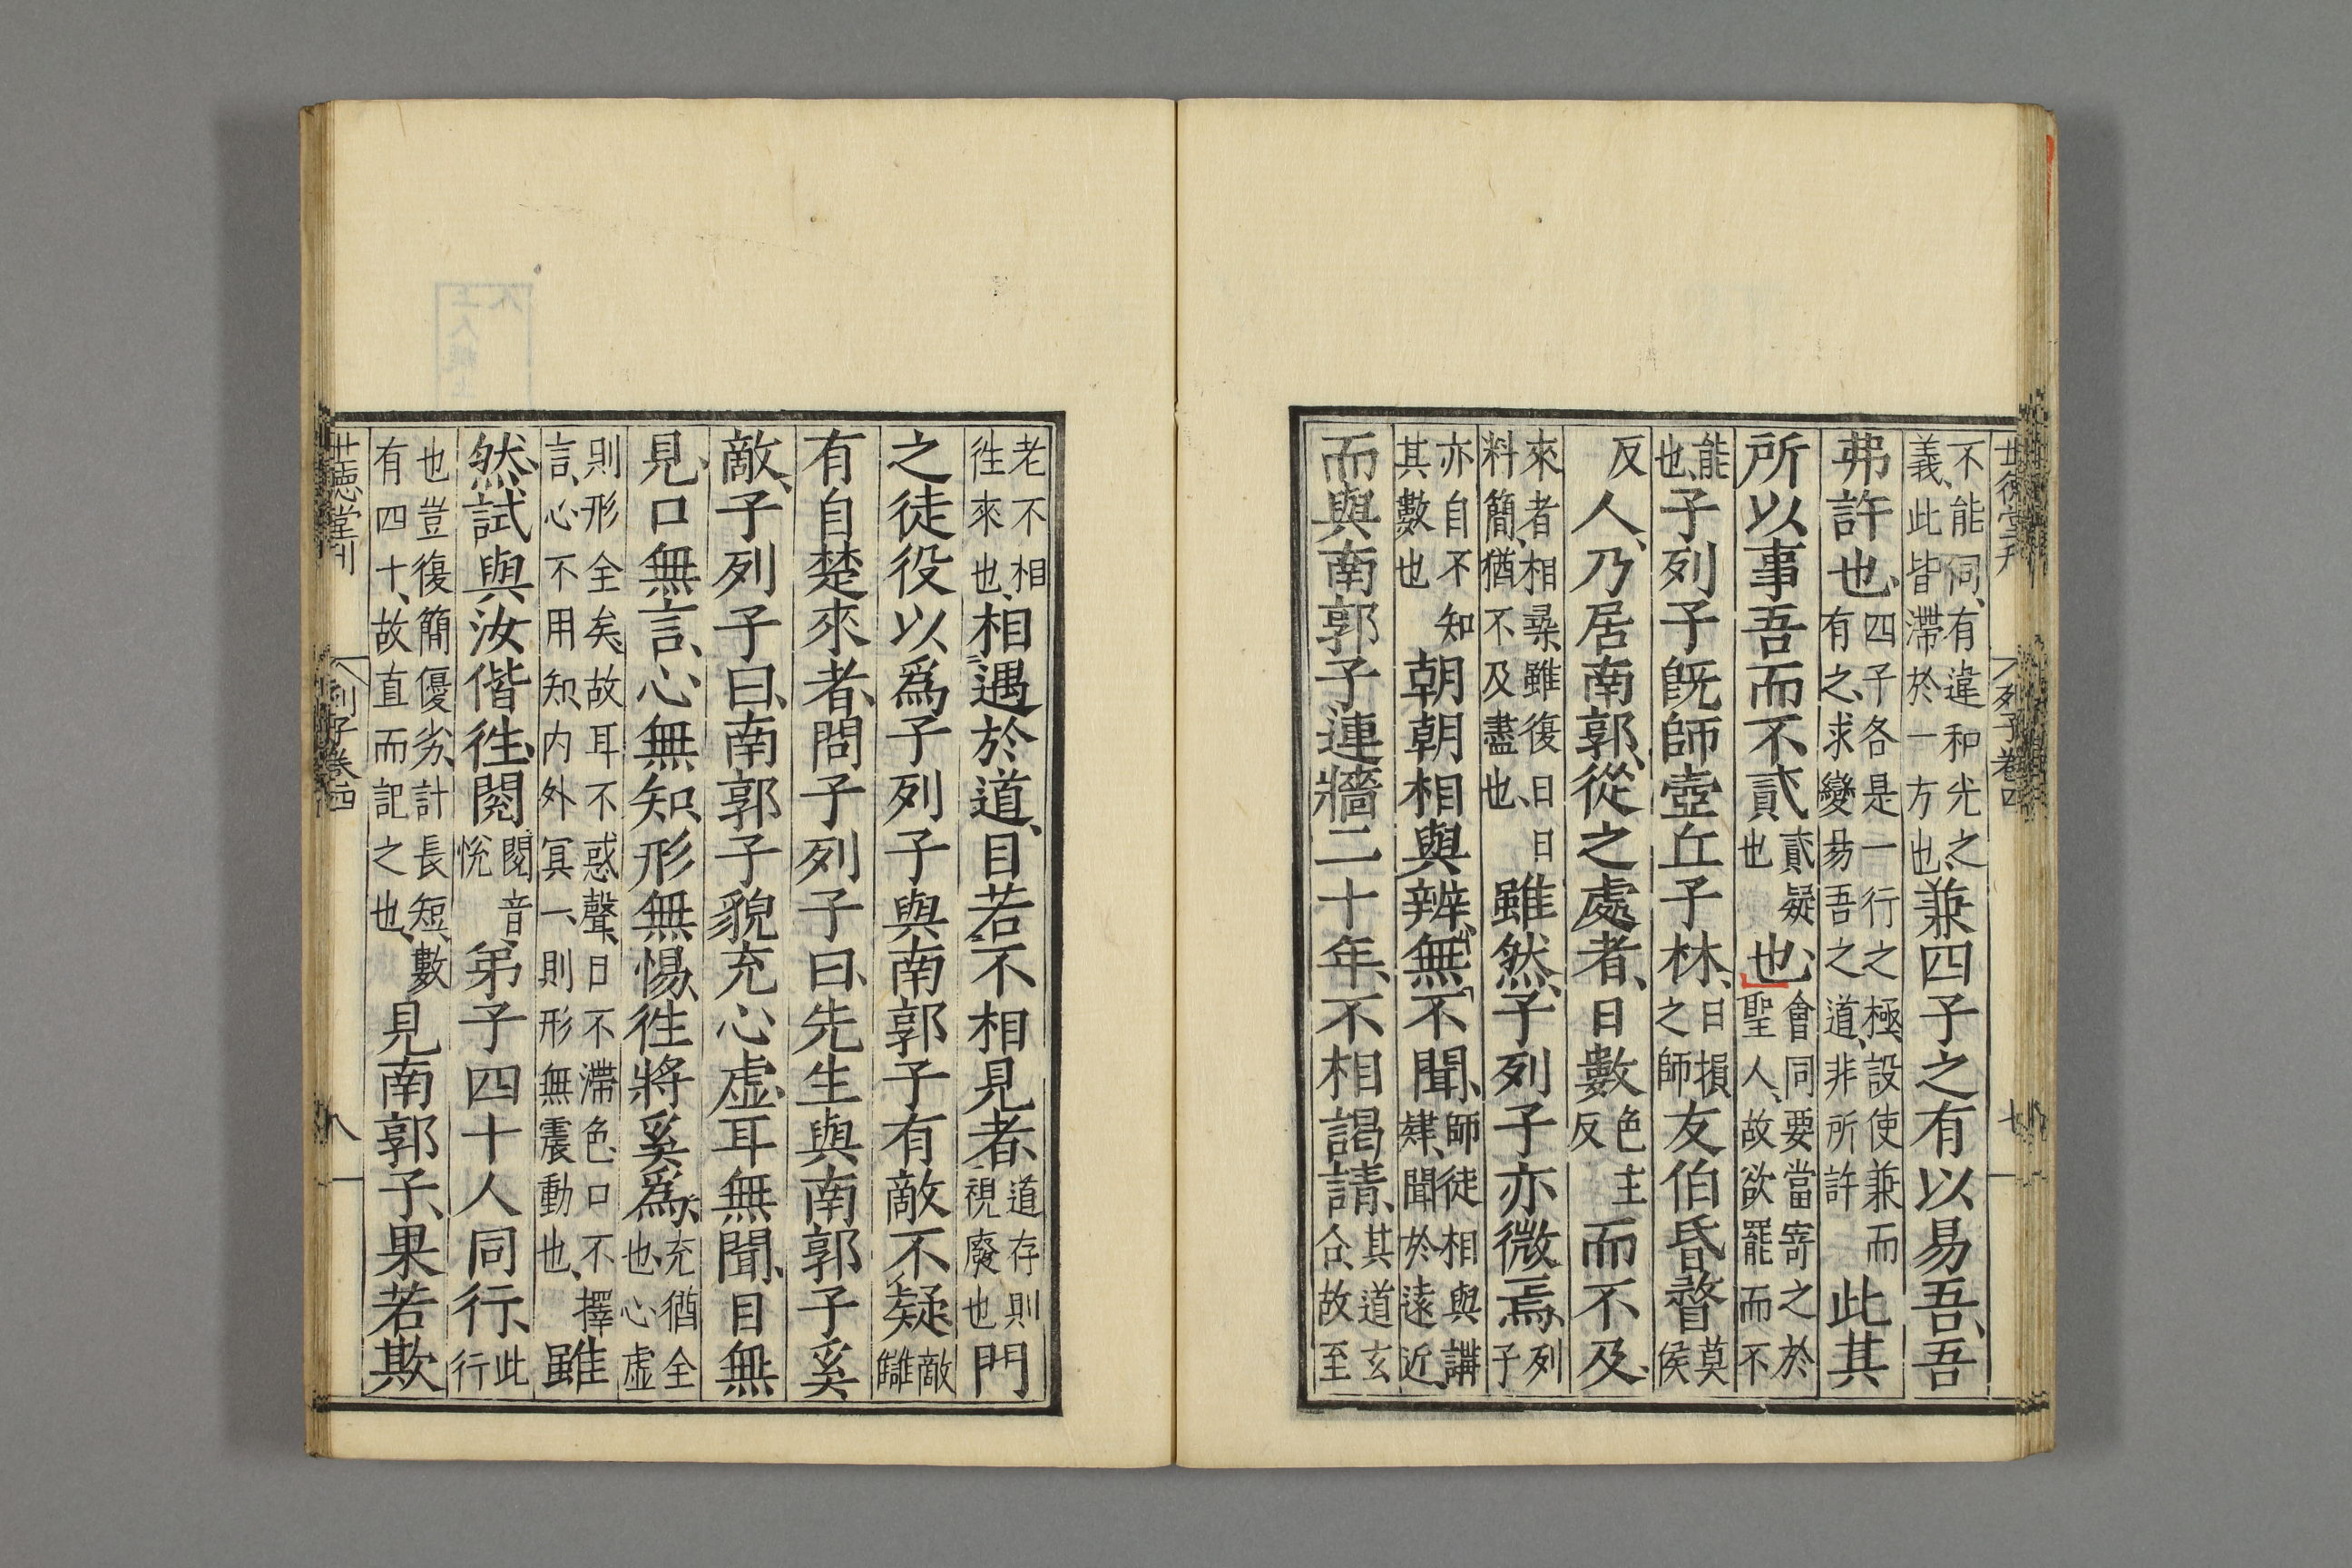 世德堂刊 列子卷四 七
不能同、有違和光之義、此皆滯於一方也、兼四子之有以易吾、吾
弗許也、四子各是一行之極設使兼而有之、求變易吾之道、非所許此其
所以事吾而不貳貳疑也也、會同要當寄之於聖人、故欲罷而不
能也、子列子既師壺丘子林、日損之師友伯昏瞀莫侯
反人、乃居南郭、從之處者、日數色主反而不及、
來者相尋雖復日日料簡、猶不及盡也、雖然、子列子亦微焉、列子
亦自不知其數也朝朝相與辨、無不聞、師徒相與講肄、聞於遠近、
而與南郭子連牆二十年、不相謁請、其道玄合、故至
老不相徃來也、相遇於道、目若不相見者、道存則視廢也門
之徒役以爲子列子與南郭子有敵不疑、敵讎
有自楚來者、問子列子曰、先生與南郭子奚
敵、子列子曰、南郭子貌充心虛、耳無聞、目無
見、口無言、心無知、形無惕、徃將奚爲、充猶全也、心虛
則形全矣、故耳不惑聲、目不滯色、口不擇言、心不用知、内外冥一、則形無震動也、雖
然、試與汝偕徃、閱閱音恱弟子四十人同行、此行
也豈復簡優劣、計長短、數有四十、故直而記之也、見南郭子、果若欺
世德堂刊 列子卷四 八